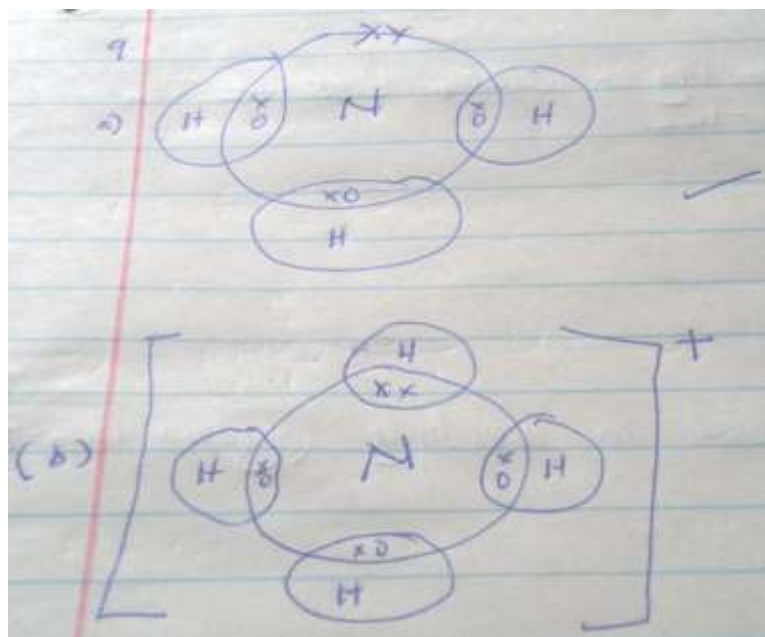 9
a)
XX
H x o N x o H
xo
H
+
H
xx
(b) H x o N x o H
xo
H